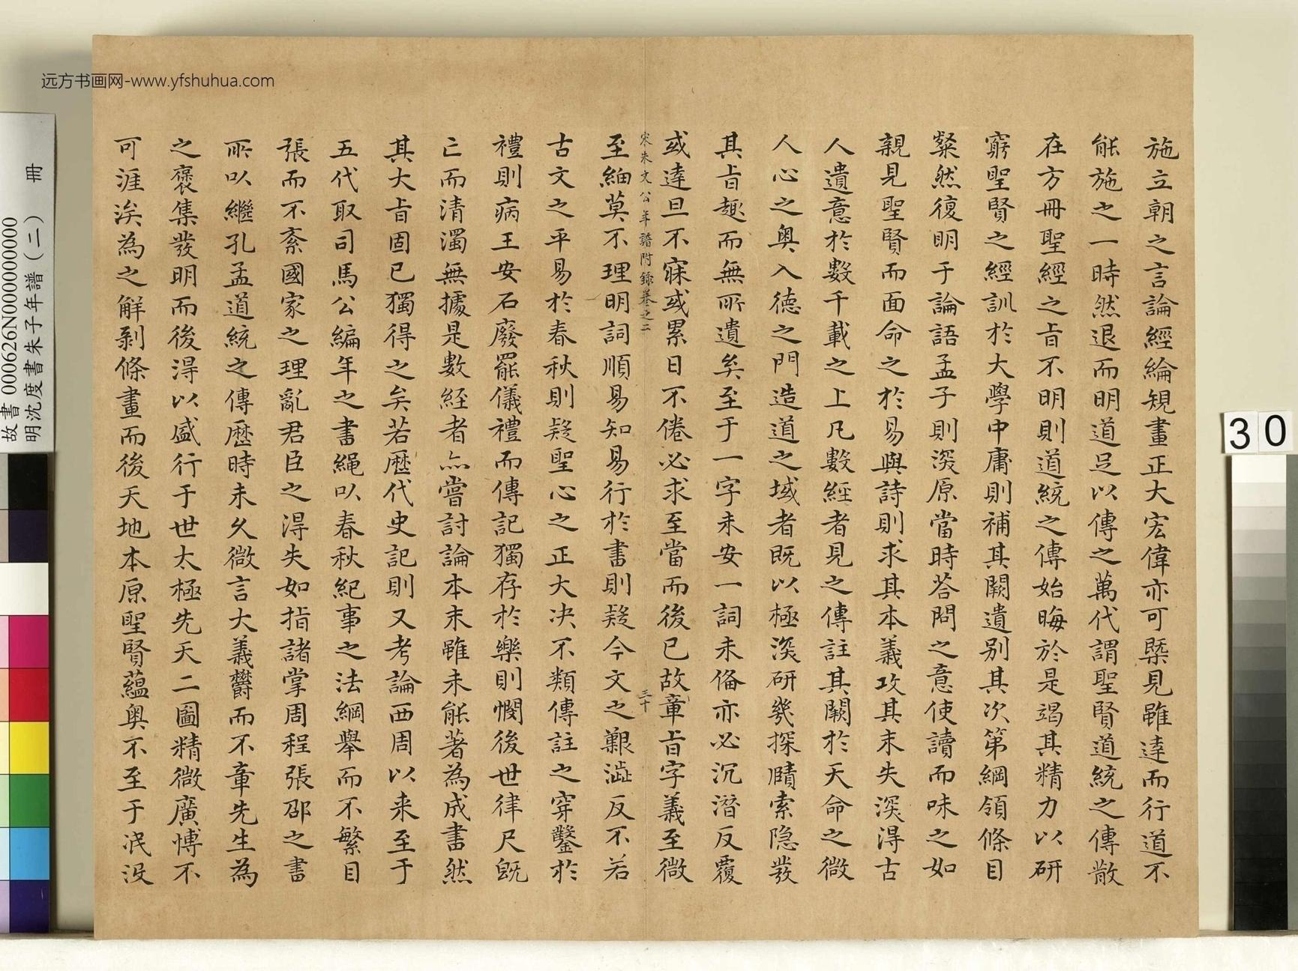 远方书画网-www.yfshuhua.com
施立朝之言論經綸規畫正大宏偉亦可槩見雖達而行道不
能施之一時然退而明道足以傳之萬代謂聖賢道統之傳散
在方冊聖經之旨不明則道統之傳始晦於是竭其精力以研
窮聖賢之經訓於大學中庸則補其闕遺别其次第綱領條目
粲然復明于論語孟子則深原當時荅問之意使讀而味之如
親見聖賢而面命之於易與詩則求其本義攻其末失深得古
人遺意於數千載之上凡數經者見之傳註其闕於天命之微
人心之奥入德之門造道之域者既以極深研幾探賾索隐發
其旨趣而無所遺矣至于一字未安一詞未俻亦必沉潛反覆
或達旦不寐或累日不倦必求至當而後已故章旨字義至微
宋朱文公年譜附録卷之二
三十
至細莫不理明詞順易知易行於書則疑今文之艱澁反不若
古文之平易於春秋則疑聖心之正大决不類傳註之穿鑿於
禮則病王安石廢罷儀禮而傳記獨存於樂則憫後世律尺既
亡而清濁無據是數經者亦嘗討論本末雖未能著為成書然
其大旨固已獨得之矣若歷代史記則又考論西周以来至于
五代取司馬公編年之書繩以春秋紀事之法綱舉而不繁目
張而不紊國家之理亂君臣之得失如指諸掌周程張邵之書
所以繼孔孟道統之傳歷時未久微言大義欝而不章先生為
之裒集發明而後得以盛行于世太極先天二圖精微廣愽不
可涯涘為之解剥條畫而後天地本原聖賢蘊奥不至于泯没
故書 000626N000000000
明沈度書朱子年譜(二) 冊
30